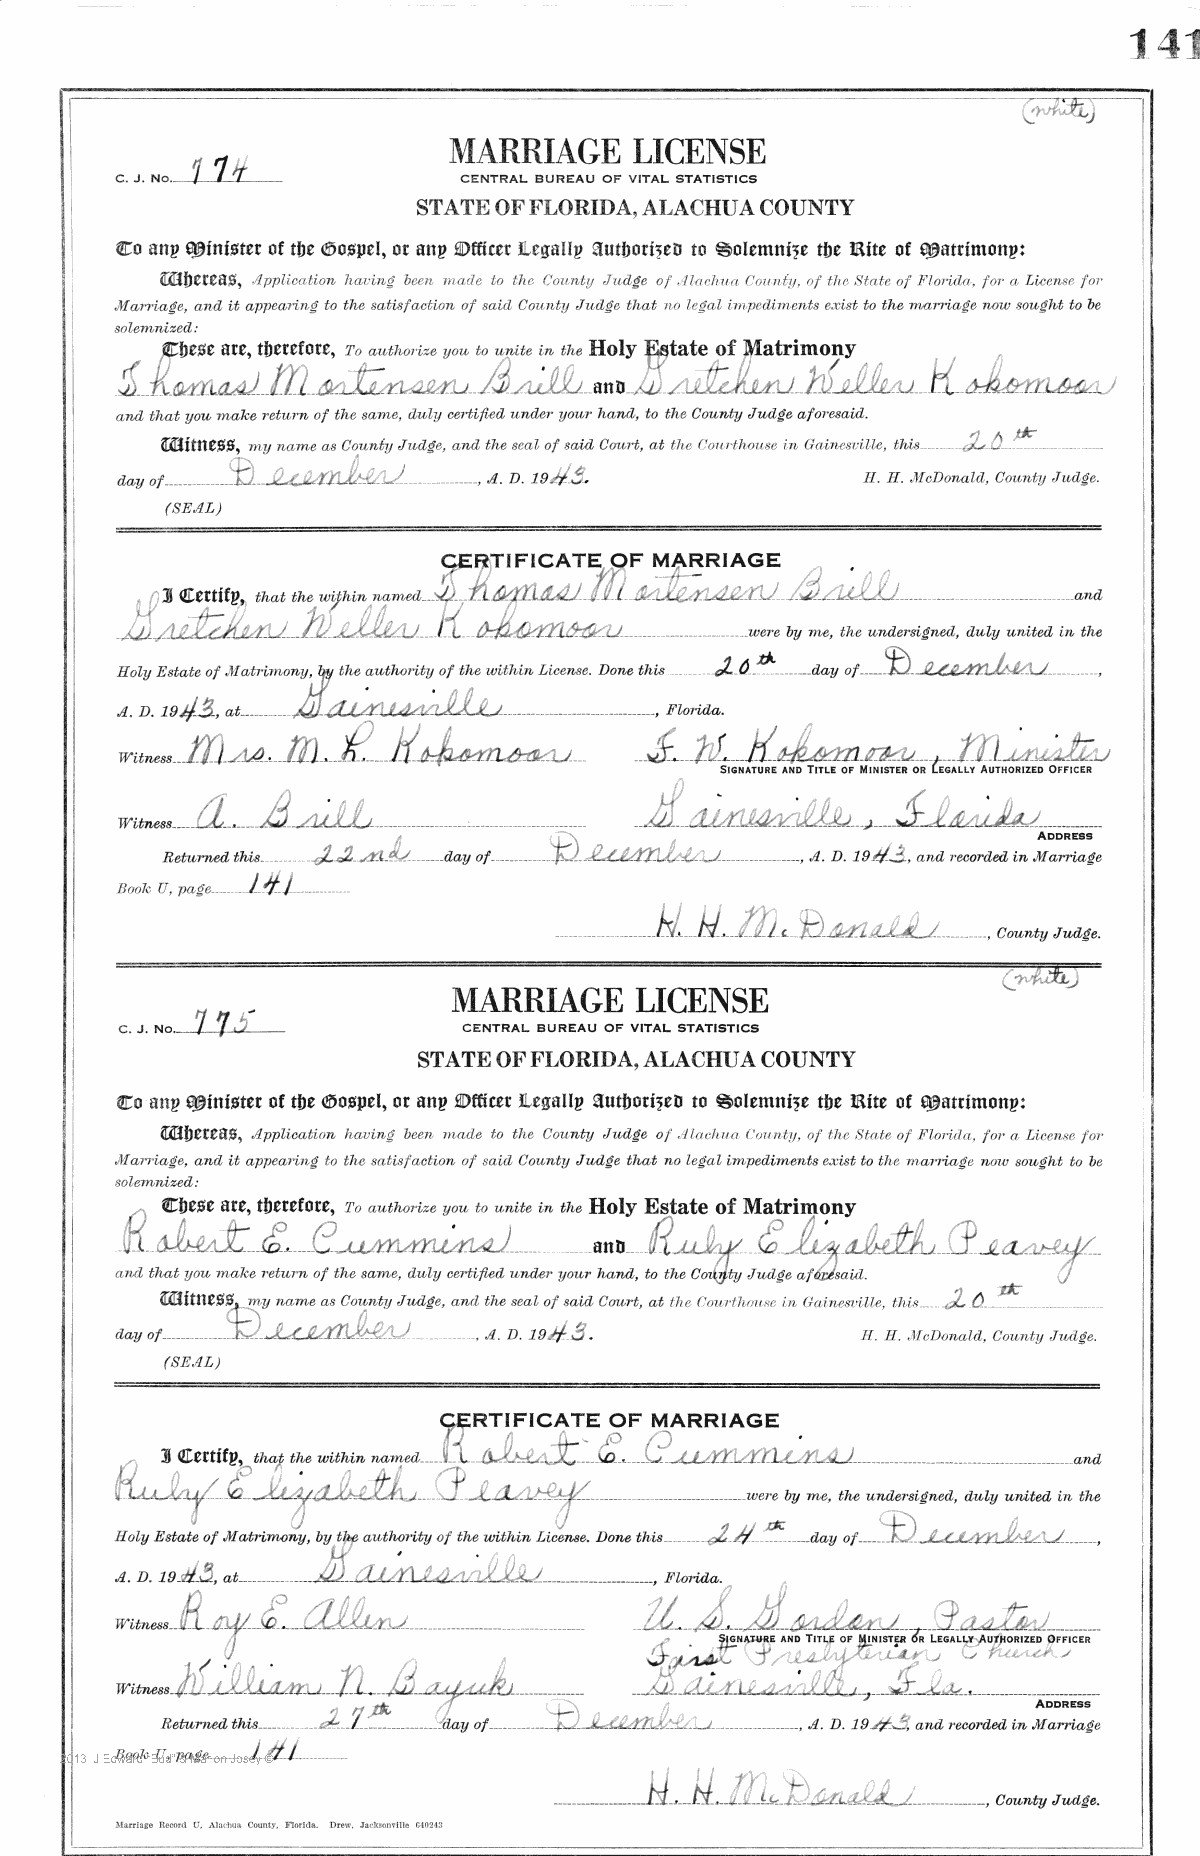 141
(white)
MARRIAGE LICENSE
C. J. No. 774
CENTRAL BUREAU OF VITAL STATISTICS
STATE OF FLORIDA, ALACHUA COUNTY
To any Minister of the Gospel, or any Officer Legally Authorized to Solemnize the Rite of Matrimony:
Whereas, Application having been made to the County Judge of Alachua County, of the State of Florida, for a License for
Marriage, and it appearing to the satisfaction of said County Judge that no legal impediments exist to the marriage now sought to be
solemnized:
These are, therefore, To authorize you to unite in the Holy Estate of Matrimony
Thomas Mortensen Brill and Gretchen Weller Kokomoor
and that you make return of the same, duly certified under your hand, to the County Judge aforesaid.
Witness, my name as County Judge, and the seal of said Court, at the Courthouse in Gainesville, this 20th
day of December, A. D. 1943. H. H. McDonald, County Judge.
(SEAL)
CERTIFICATE OF MARRIAGE
I Certify, that the within named Thomas Mortensen Brill and
Gretchen Weller Kokomoor were by me, the undersigned, duly united in the
Holy Estate of Matrimony, by the authority of the within License. Done this 20th day of December,
A. D. 1943, at Gainesville, Florida.
Witness Mrs. M. L. Kokomoor F. W. Kokomoor, Minister
SIGNATURE AND TITLE OF MINISTER OR LEGALLY AUTHORIZED OFFICER
Witness A. Brill Gainesville, Florida
ADDRESS
Returned this 22nd day of December, A. D. 1943, and recorded in Marriage
Book U, page 141
H. H. McDonald, County Judge.
(white)
MARRIAGE LICENSE
C. J. No. 775
CENTRAL BUREAU OF VITAL STATISTICS
STATE OF FLORIDA, ALACHUA COUNTY
To any Minister of the Gospel, or any Officer Legally Authorized to Solemnize the Rite of Matrimony:
Whereas, Application having been made to the County Judge of Alachua County, of the State of Florida, for a License for
Marriage, and it appearing to the satisfaction of said County Judge that no legal impediments exist to the marriage now sought to be
solemnized:
These are, therefore, To authorize you to unite in the Holy Estate of Matrimony
Robert E. Cummins and Ruby Elizabeth Peavey
and that you make return of the same, duly certified under your hand, to the County Judge aforesaid.
Witness, my name as County Judge, and the seal of said Court, at the Courthouse in Gainesville, this 20th
day of December, A. D. 1943. H. H. McDonald, County Judge.
(SEAL)
CERTIFICATE OF MARRIAGE
I Certify, that the within named Robert E. Cummins and
Ruby Elizabeth Peavey were by me, the undersigned, duly united in the
Holy Estate of Matrimony, by the authority of the within License. Done this 24th day of December,
A. D. 1943, at Gainesville, Florida.
Witness Roy E. Allen U. S. Gordon, Pastor
SIGNATURE AND TITLE OF MINISTER OR LEGALLY AUTHORIZED OFFICER
First Presbyterian Church
Witness William N. Bayuk Gainesville, Fla.
ADDRESS
Returned this 27th day of December, A. D. 1943 and recorded in Marriage
Book U, page 141
2013 J Edward
H. H. McDonald, County Judge.
Marriage Record U, Alachua County, Florida. Drew, Jacksonville 640243